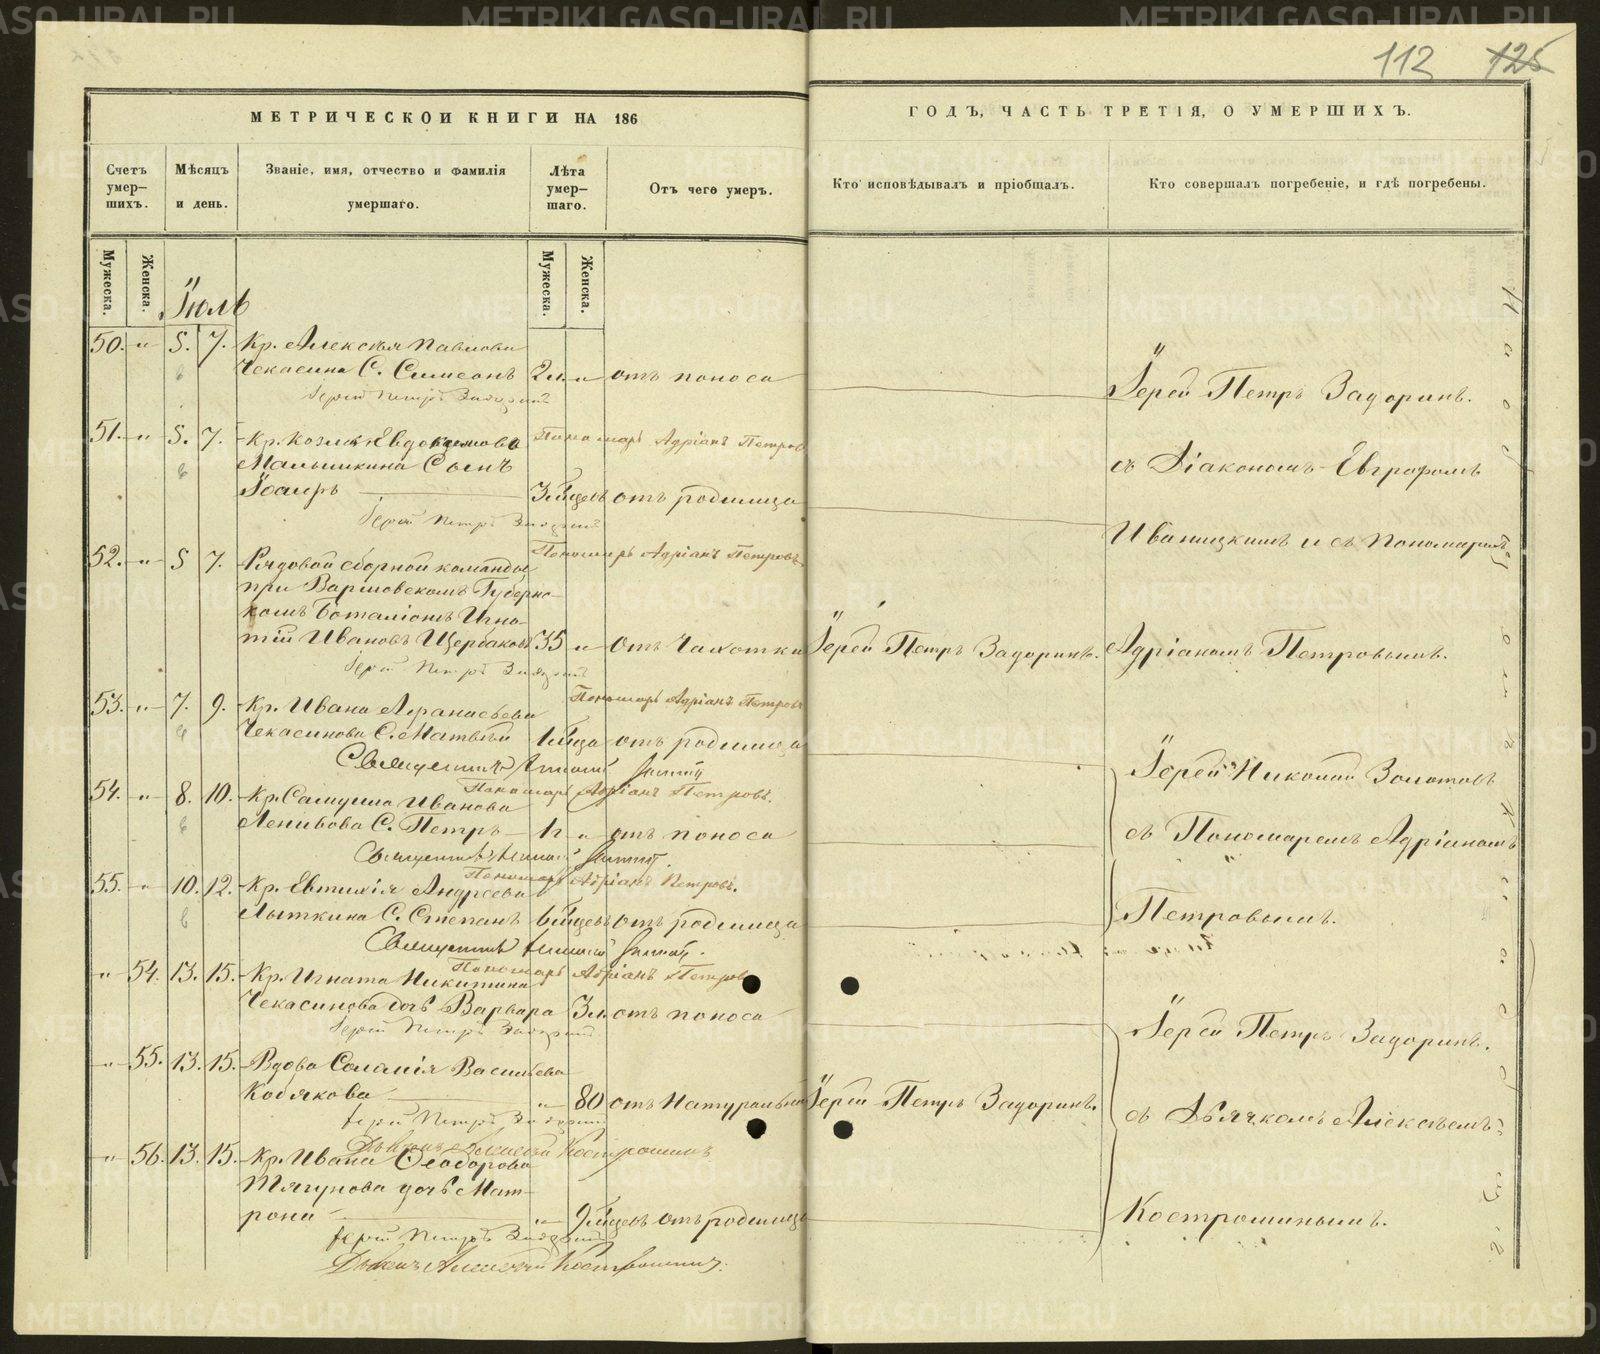 112 125
МЕТРИЧЕСКОЙ КНИГИ НА 186 ГОДЪ, ЧАСТЬ ТРЕТІЯ, О УМЕРШИХЪ.
Счетъ умер-шихъ.
Мѣсяцъ и день.
Званіе, имя, отчество и фамилія умершаго.
Лѣта умер-шаго.
Отъ чего умеръ.
Кто исповѣдывалъ и пріобщалъ.
Кто совершалъ погребеніе, и гдѣ погребены.
Мужеска. Женска.
Мужеска. Женска.
Іюль
50. „ 5. 7. Кр. Алексѣя Павлова
Чекасина С. Симеонъ 2 л. „ отъ поноса
Іерей Петръ Задоринъ
Іерей Петръ Задоринъ.
Пономарь Адріанъ Петровъ
51. „ 5. 7. Кр. Козмы Евдокимова
Малышкина Сынъ
Іоаннъ 3 мѣсцевъ отъ родимца
Іерей Петръ Задоринъ
съ Діакономъ Евграфомъ
Иваницкимъ и съ Пономаремъ
Пономарь Адріанъ Петровъ
52. „ 5 7. Рядовой сборной команды
при Варшовскомъ Губернс-
комъ Боталіонѣ Игна-
тій Ивановъ Щербаковъ 35 „ отъ Чахотки Іерей Петръ Задоринъ. Адріаномъ Петровымъ.
Іерей Петръ Задоринъ
Пономарь Адріанъ Петровъ
53. „ 7. 9. Кр. Ивана Афанасьева
Чекасинова С. Матвѣй 1 мѣсца отъ родимца
Священникъ
Іерей Николай Золотовъ
Пономарь Адріанъ Петровъ.
54. „ 8. 10. Кр. Самуила Иванова
Ленивова С. Петръ 1 г „ отъ поноса
съ Пономаремъ Адріаномъ
Священникъ
Пономарь Адріанъ Петровъ.
55. „ 10. 12. Кр. Евтихія Андреева
Лыткина С. Степанъ 6 мѣсцевъ отъ родимца
Петровымъ.
Священникъ
Пономарь Адріанъ Петровъ
„ 54. 13. 15. Кр. Игната Никитина
Чекасинова дочь Варвара 3 л. отъ поноса
Іерей Петръ Задоринъ
Іерей Петръ Задоринъ.
„ 55. 13. 15. Вдова Соломія Васильева
Кобякова „ 80 отъ Натуральной Іерей Петръ Задоринъ.
съ Дьячкомъ Алексѣемъ
Іерей Петръ Задоринъ
Дьячекъ Алексѣй Костроминъ
„ 56. 13. 15. Кр. Ивана Ѳеодорова
Тягунова дочь Мат-
рона „ 9 мѣсцевъ отъ родимца
Костроминымъ.
Іерей Петръ Задоринъ
Дьячекъ Алексѣй Костроминъ.
METRIKI.GASO-URAL.RU